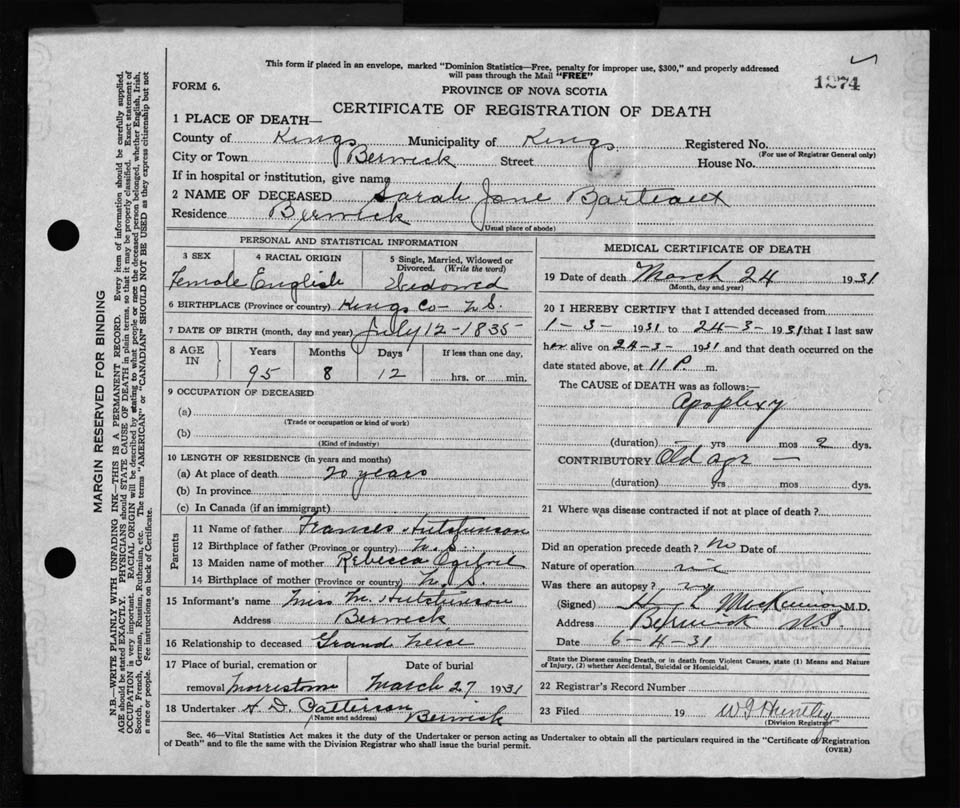 This form if placed in an envelope, marked "Dominion Statistics—Free, penalty for improper use, $300," and properly addressed
will pass through the Mail "FREE"
1274
FORM 6.
PROVINCE OF NOVA SCOTIA
CERTIFICATE OF REGISTRATION OF DEATH
1 PLACE OF DEATH—
County of Kings Municipality of Kings Registered No.
(For use of Registrar General only)
City or Town Berwick Street House No.
If in hospital or institution, give name
2 NAME OF DECEASED Sarah Jane Barteaux
Residence Berwick
(Usual place of abode)
PERSONAL AND STATISTICAL INFORMATION
3 SEX 4 RACIAL ORIGIN 5 Single, Married, Widowed or
Divorced. (Write the word)
Female English Widowed
6 BIRTHPLACE (Province or country) Kings Co— N.S.
7 DATE OF BIRTH (month, day and year) July 12-1835
8 AGE IN Years Months Days If less than one day,
95 8 12 hrs. or min.
9 OCCUPATION OF DECEASED
(a)
(Trade or occupation or kind of work)
(b)
(Kind of industry)
10 LENGTH OF RESIDENCE (in years and months)
(a) At place of death 20 years
(b) In province
(c) In Canada (if an immigrant)
Parents
11 Name of father Frances Hutchinson
12 Birthplace of father (Province or country) N.S.
13 Maiden name of mother Rebecca
14 Birthplace of mother (Province or country) N.S.
15 Informant's name Miss M. Hutchinson
Address Berwick
16 Relationship to deceased Grand Neice
17 Place of burial, cremation or Date of burial
removal Morristown March 27 1931
18 Undertaker A. D. Patterson
(Name and address) Berwick
MEDICAL CERTIFICATE OF DEATH
19 Date of death March 24 1931
(Month, day and year)
20 I HEREBY CERTIFY that I attended deceased from
1-3- 1931 to 24-3- 1931 that I last saw
her alive on 24-3- 1931 and that death occurred on the
date stated above, at 11 P. m.
The CAUSE of DEATH was as follows:—
Apoplexy
(duration) — yrs mos 2 dys.
CONTRIBUTORY Old age —
(duration) yrs mos dys.
21 Where was disease contracted if not at place of death?
Did an operation precede death? no Date of
Nature of operation
Was there an autopsy? no
(Signed) M.D.
Address Berwick N.S.
Date 6-4-31
State the Disease causing Death, or in death from Violent Causes, state (1) Means and Nature
of Injury, (2) whether Accidental, Suicidal or Homicidal.
22 Registrar's Record Number
23 Filed 19 W J Huntley
(Division Registrar)
Sec. 46—Vital Statistics Act makes it the duty of the Undertaker or person acting as Undertaker to obtain all the particulars required in the "Certificate of Registration
of Death" and to file the same with the Division Registrar who shall issue the burial permit.
(OVER)
MARGIN RESERVED FOR BINDING
N.B.—WRITE PLAINLY WITH UNFADING INK—THIS IS A PERMANENT RECORD. Every item of information should be carefully supplied.
AGE should be stated EXACTLY. PHYSICIANS should STATE CAUSE OF DEATH in plain terms, so that it may be properly classified. Exact statement of
OCCUPATION is very important. RACIAL ORIGIN will be described by stating to what people or race the deceased person belonged, whether English, Irish,
Scotch, French, German, Russian, Ruthenian, etc. The terms "AMERICAN" or "CANADIAN" SHOULD NOT BE USED as they express citizenship but not
a race or people. See instructions on back of Certificate.